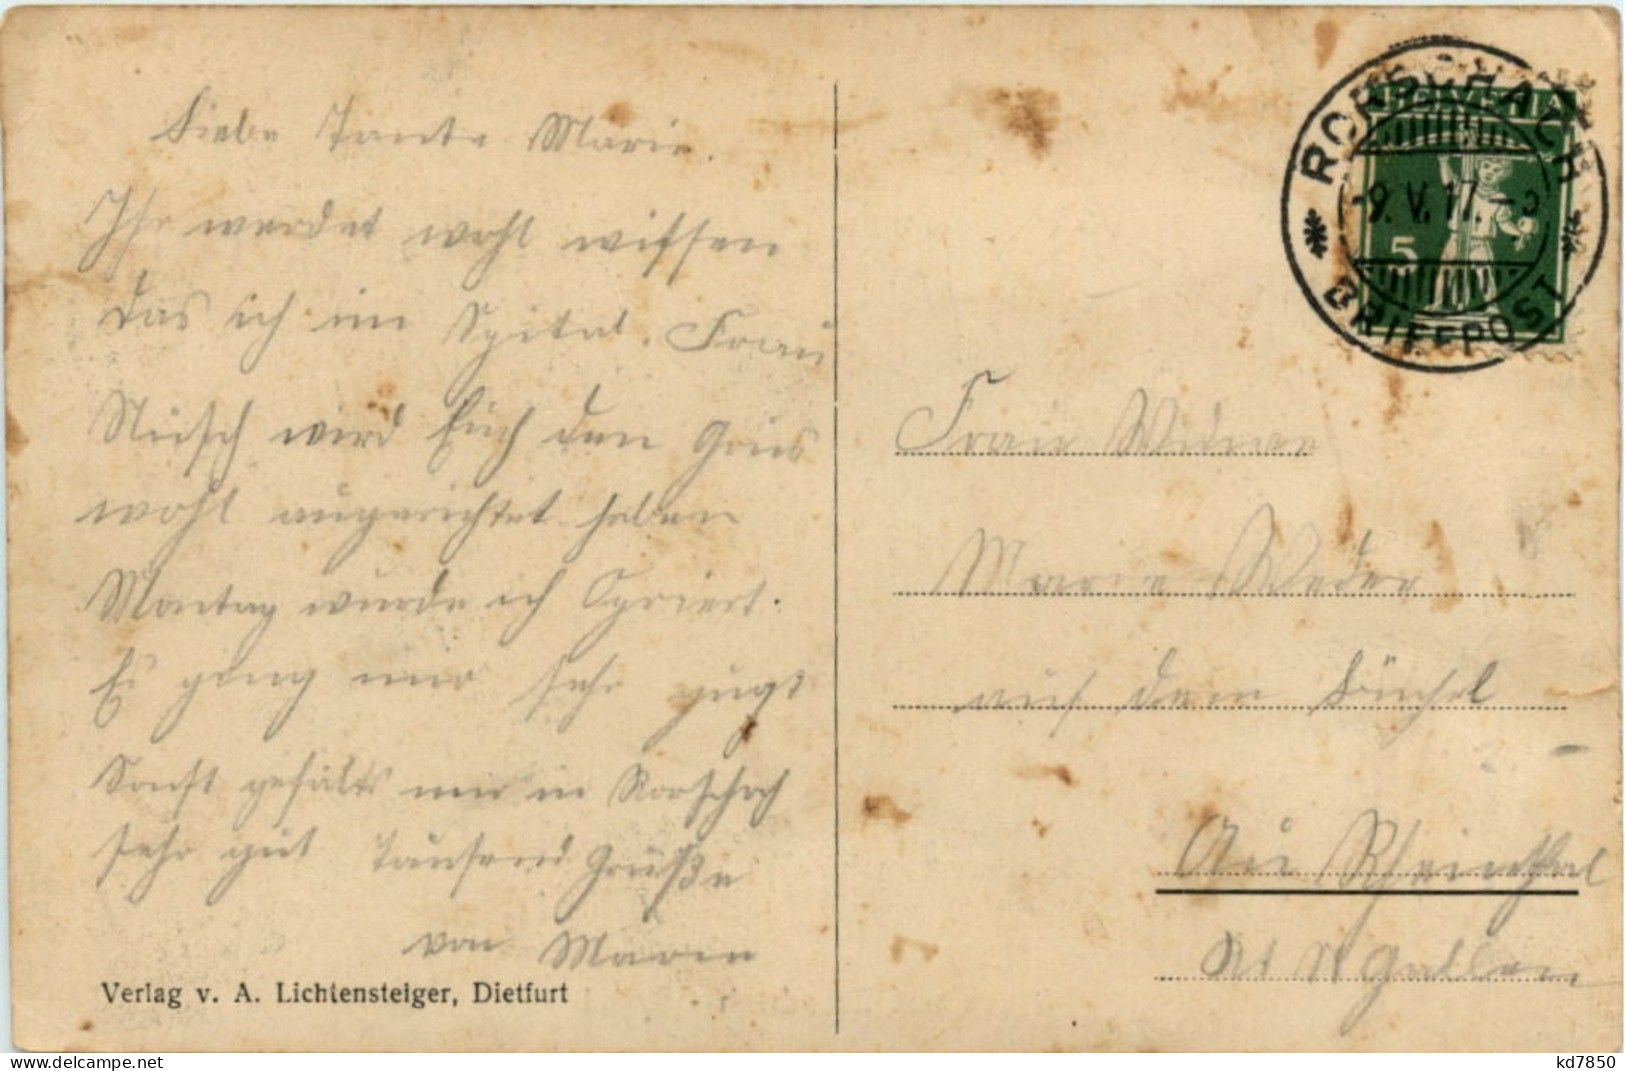 Liebe Tante Marie.
Ihr werdet wohl wissen
das ich im Spital. Frau
Nüsch wird Euch den Grus
wohl ausgerichtet haben
Montag wurde ich Operiert.
Es ging mir sehr
Sonst gefälts mir in Rorschach
sehr gut Tausend Grüße
von
Verlag v. A. Lichtensteiger, Dietfurt
RORSCHACH
HELVETIA
9. V. 17.
5
BRIEFPOST
Frau Witwe
Marie Weder
auf dem Büchel
Au Rheinthal
Kt St Gallen
delcampe.net
kd7850